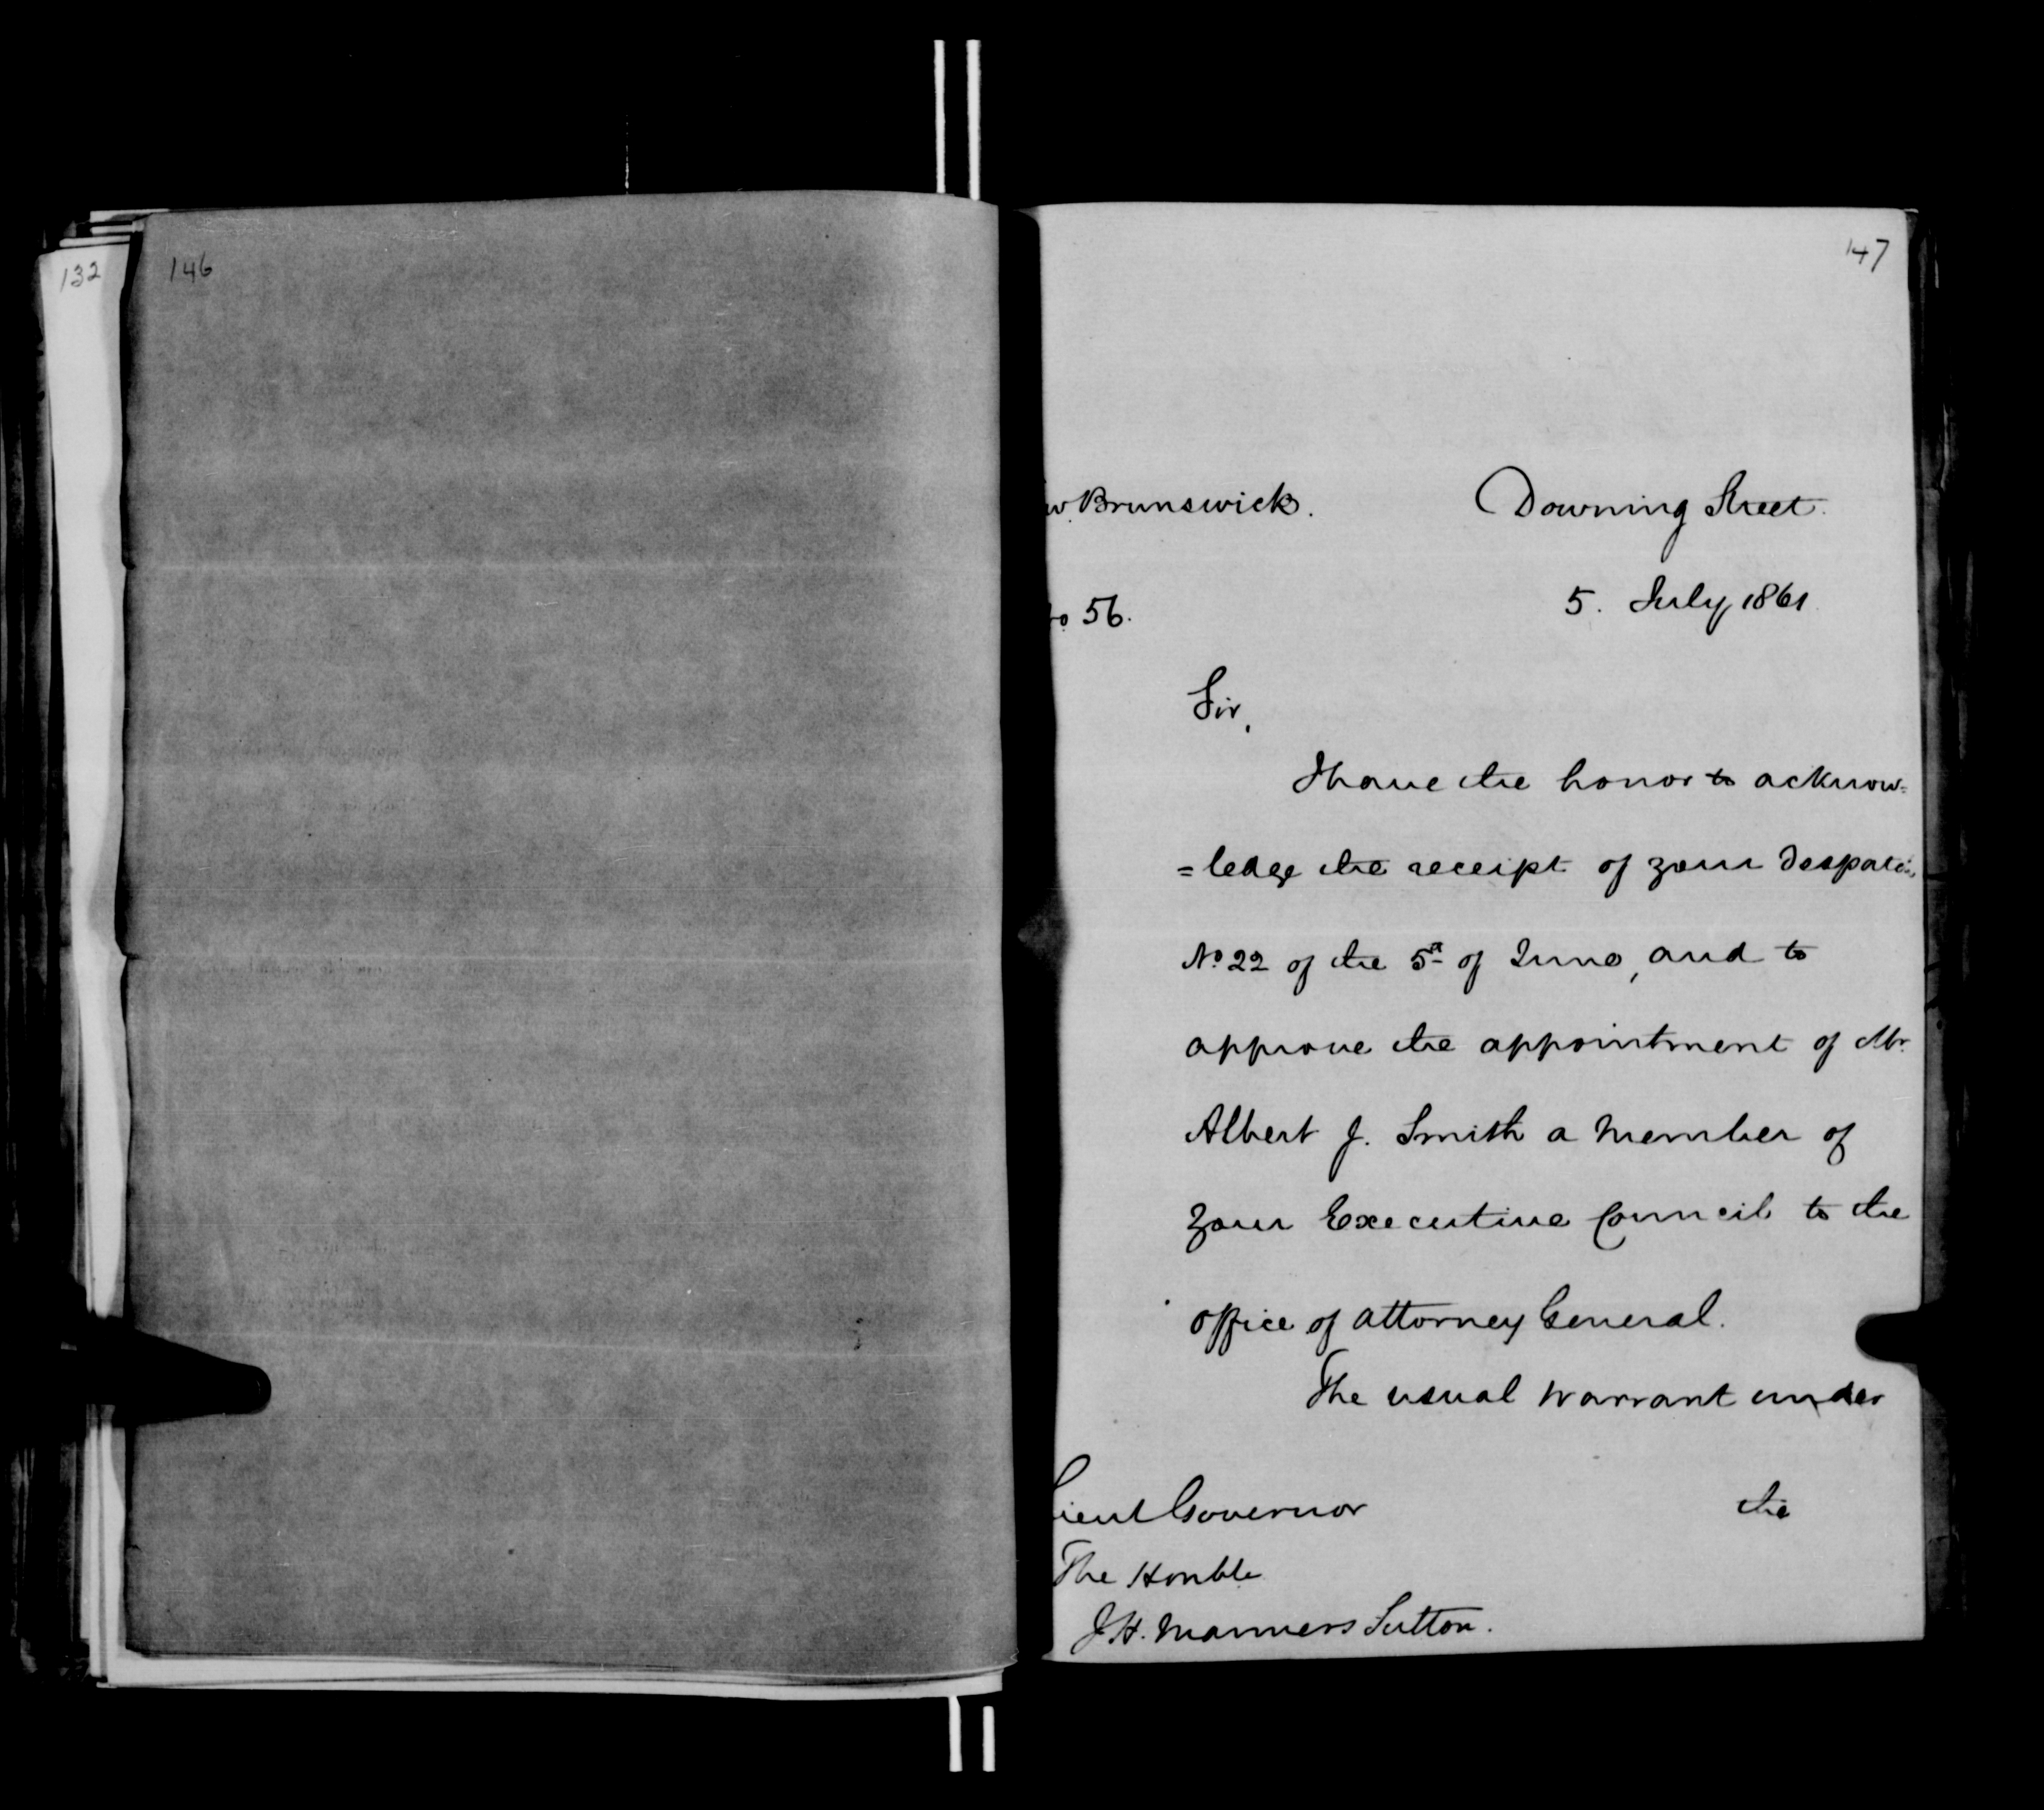 132
146
147
w Brunswick.
Downing Street.
o 56.
5. July 1861
Sir,
I have the honor to acknow=
=ledge the receipt of your Despatch
No. 22 of the 5th of June, and to
approve the appointment of Mr.
Albert J. Smith a Member of
your Executive Council to the
office of Attorney General.
The usual Warrant under
the
Lieut Governor
The Honble
J.H. Manners Sutton.